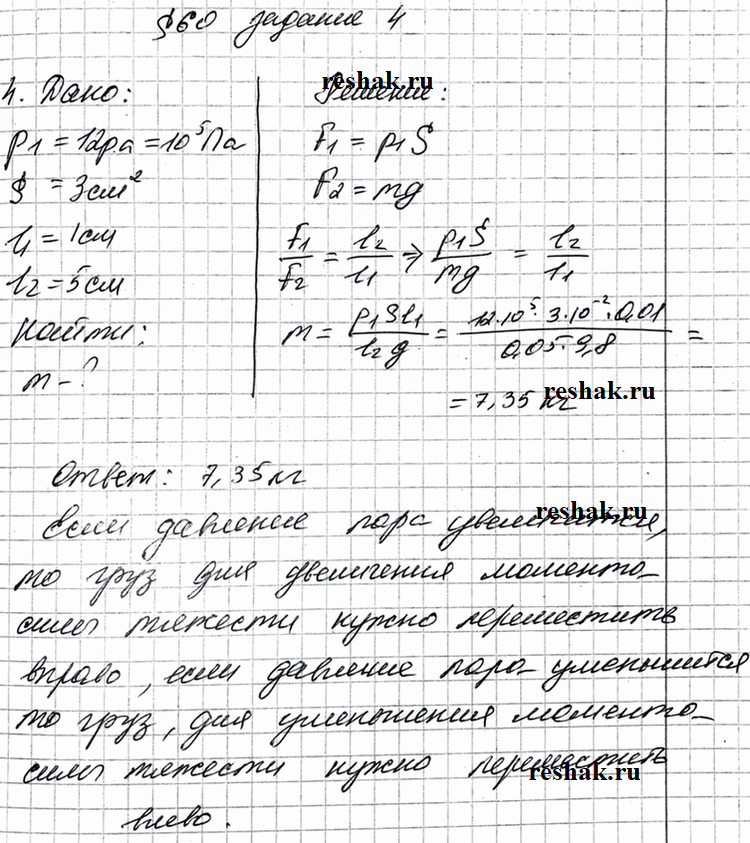 §60 задание 4
reshak.ru
4. Дано:
Решение:
p1 = 12 pa = 10⁵ Па
S = 3 см²
l1 = 1 см
l2 = 5 см
Найти:
m - ?
F1 = p1S
F2 = mg
F1/F2 = l2/l1 => p1S/mg = l2/l1
m = p1Sl1/l2g = 12·10⁵·3·10⁻²·0,01/0,05·9,8 =
= 7,35 кг
reshak.ru
Ответ: 7,35 кг
reshak.ru
Если давление пара увеличится,
то груз для увеличения момента
силы тяжести нужно переместить
вправо, если давление пара уменьшится
то груз, для уменьшения момента
силы тяжести нужно переместить
reshak.ru
влево.